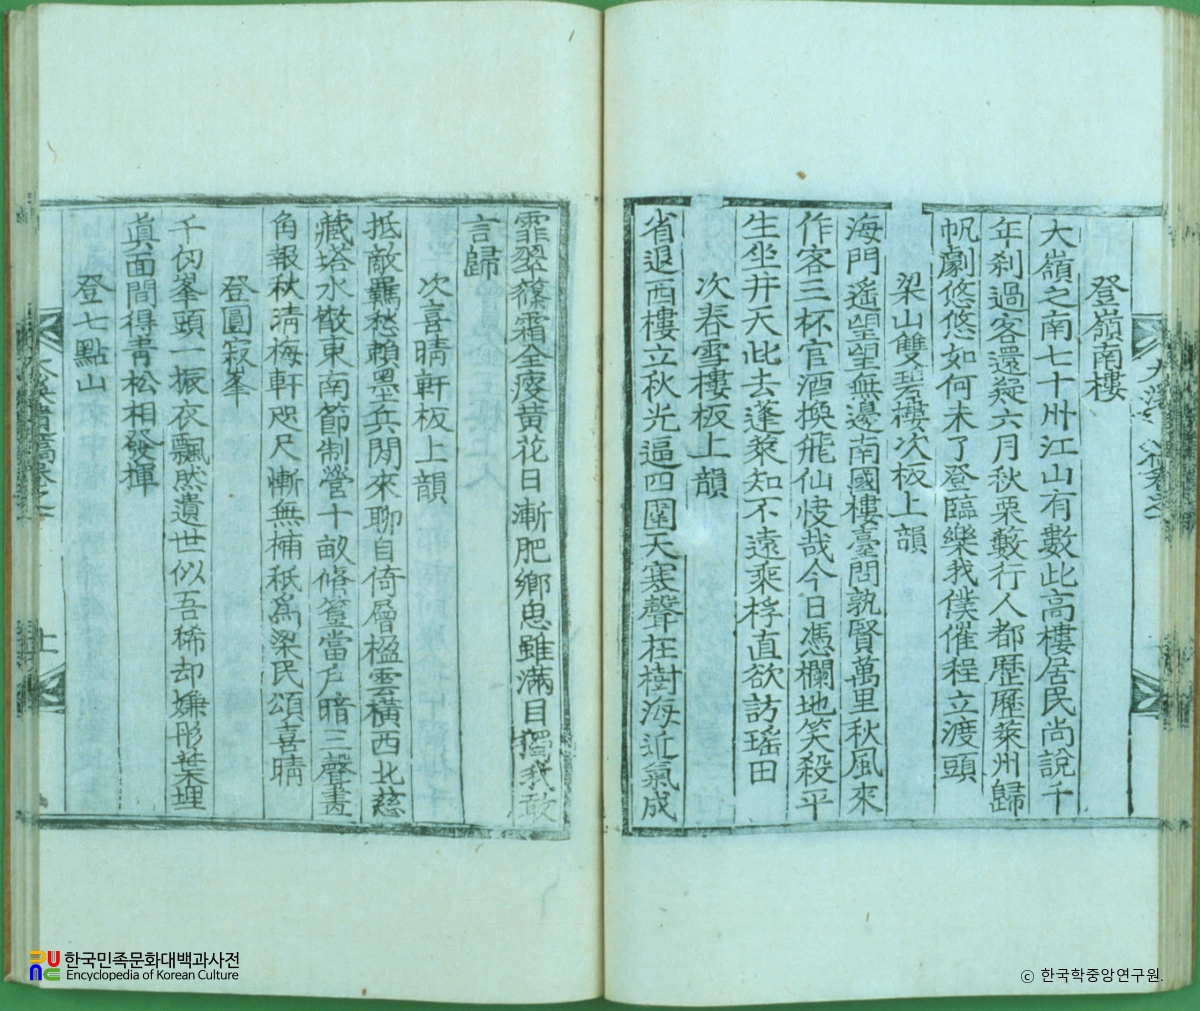 登嶺南樓
大嶺之南七十州江山有數此高樓居民尚說千
年刹過客還疑六月秋栗藪行人都歷歷萊州歸
帆劇悠悠如何未了登臨樂我僕催程立渡頭
梁山雙碧樓次板上韻
海門遙望望無邊南國樓臺問孰賢萬里秋風來
作客三杯官酒換飛仙快哉今日憑欄地笑殺平
生坐井天此去蓬萊知不遠乘桴直欲訪瑤田
次春雪樓板上韻
省退西樓立秋光逼四圍天寒聲在樹海近氣成
霏翠篠霜全瘦黃花日漸肥鄉思雖滿目獨我敢
言歸
次喜晴軒板上韻
抵敵羈愁賴墨兵閒來聊自倚層楹雲橫西北慈
藏塔水散東南節制營十畝脩篁當戶暗三聲畫
角報秋淸梅軒咫尺慚無補秖爲梁民頌喜晴
登圓寂峯
千仞峯頭一振衣飄然遺世似吾稀却嫌彤葉埋
眞面間得靑松相發揮
登七點山
한국민족문화대백과사전
Encyclopedia of Korean Culture
ⓒ 한국학중앙연구원.